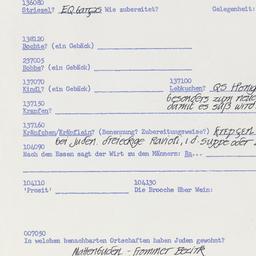 136080
Striezel? Wie zubereitet? Gelegenheit:
138120
Bochts? (ein Gebäck)
237005
Bobbe? (ein Gebäck)
137070 137100
Kindl? (ein Gebäck) Lebkuchen? als Honig
besonders zum neue
137150 damit es süß wird
Krapfen?
137160
Kräpfchen/Kräpflein? (Benennung? Zubereitungsweise?) krepsen
bei Juden. dreieckige Ravioli, i.d. Suppe oder
104090
Nach dem Essen sagt der Wirt zu den Männern: Ra...
104110 104130
'Prosit' Die Broche über Wein:
007050
In welchen benachbarten Ortschaften haben Juden gewohnt?